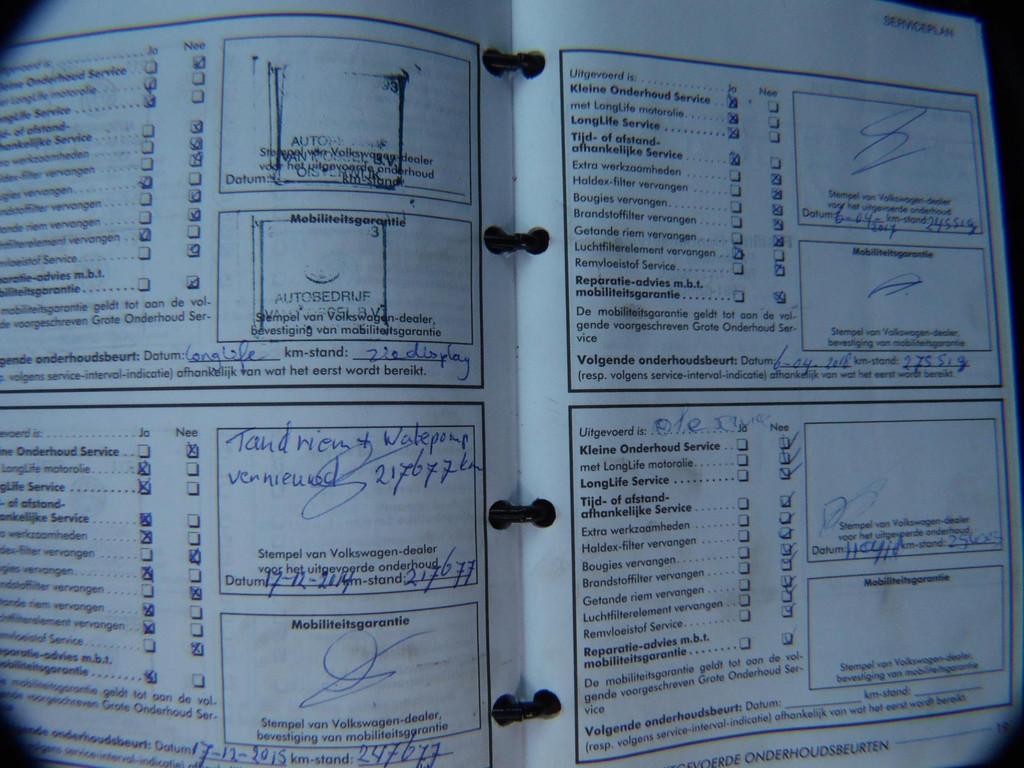 Ja Nee
ine Onderhoud Service
LongLife motorolie
ngLife Service
d- of afstand-
nkelijke Service
a werkzaamheden
-filter vervangen
gies vervangen
ndstoffilter vervangen
nde riem vervangen
filterelement vervangen
mvloeistof Service
aratie-advies m.b.t.
biliteitsgarantie
mobiliteitsgarantie geldt tot aan de vol-
de voorgeschreven Grote Onderhoud Ser-
AUTOBEDRIJF
Stempel van Volkswagen-dealer
voor het uitgevoerde onderhoud
Datum: km-stand:
Mobiliteitsgarantie
AUTOBEDRIJF
Stempel van Volkswagen-dealer,
bevestiging van mobiliteitsgarantie
gende onderhoudsbeurt: Datum: Longlife km-stand: zie display
(resp. volgens service-interval-indicatie) afhankelijk van wat het eerst wordt bereikt.
evoerd is: Ja Nee
ine Onderhoud Service
LongLife motorolie
ngLife Service
d- of afstand-
ankelijke Service
a werkzaamheden
dex-filter vervangen
gies vervangen
ndstoffilter vervangen
ande riem vervangen
htfilterelement vervangen
mvloeistof Service
paratie-advies m.b.t.
obiliteitsgarantie
mobiliteitsgarantie geldt tot aan de vol-
de voorgeschreven Grote Onderhoud Ser-
Tandriem + Watepomp
vernieuwd 217677 km
Stempel van Volkswagen-dealer
voor het uitgevoerde onderhoud
Datum: 17-12-2014 km-stand: 217677
Mobiliteitsgarantie
Stempel van Volkswagen-dealer,
bevestiging van mobiliteitsgarantie
ende onderhoudsbeurt: Datum: 17-12-2015 km-stand: 247677
SERVICEPLAN
Uitgevoerd is: Ja Nee
Kleine Onderhoud Service
met LongLife motorolie
LongLife Service
Tijd- of afstand-
afhankelijke Service
Extra werkzaamheden
Haldex-filter vervangen
Bougies vervangen
Brandstoffilter vervangen
Getande riem vervangen
Luchtfilterelement vervangen
Remvloeistof Service
Reparatie-advies m.b.t.
mobiliteitsgarantie
De mobiliteitsgarantie geldt tot aan de vol-
gende voorgeschreven Grote Onderhoud Ser-
vice
Stempel van Volkswagen-dealer
voor het uitgevoerde onderhoud
Datum: 6-04-2017 km-stand: 245519
Mobiliteitsgarantie
Stempel van Volkswagen-dealer,
bevestiging van mobiliteitsgarantie
Volgende onderhoudsbeurt: Datum: 6-04-2018 km-stand: 275519
(resp. volgens service-interval-indicatie) afhankelijk van wat het eerst wordt bereikt.
Uitgevoerd is: Ja Nee
Kleine Onderhoud Service
met LongLife motorolie
LongLife Service
Tijd- of afstand-
afhankelijke Service
Extra werkzaamheden
Haldex-filter vervangen
Bougies vervangen
Brandstoffilter vervangen
Getande riem vervangen
Luchtfilterelement vervangen
Remvloeistof Service
Reparatie-advies m.b.t.
mobiliteitsgarantie
De mobiliteitsgarantie geldt tot aan de vol-
gende voorgeschreven Grote Onderhoud Ser-
vice
Stempel van Volkswagen-dealer
voor het uitgevoerde onderhoud
Datum: km-stand:
Mobiliteitsgarantie
Stempel van Volkswagen-dealer,
bevestiging van mobiliteitsgarantie
Volgende onderhoudsbeurt: Datum: km-stand:
(resp. volgens service-interval-indicatie) afhankelijk van wat het eerst wordt bereikt.
TGEVOERDE ONDERHOUDSBEURTEN